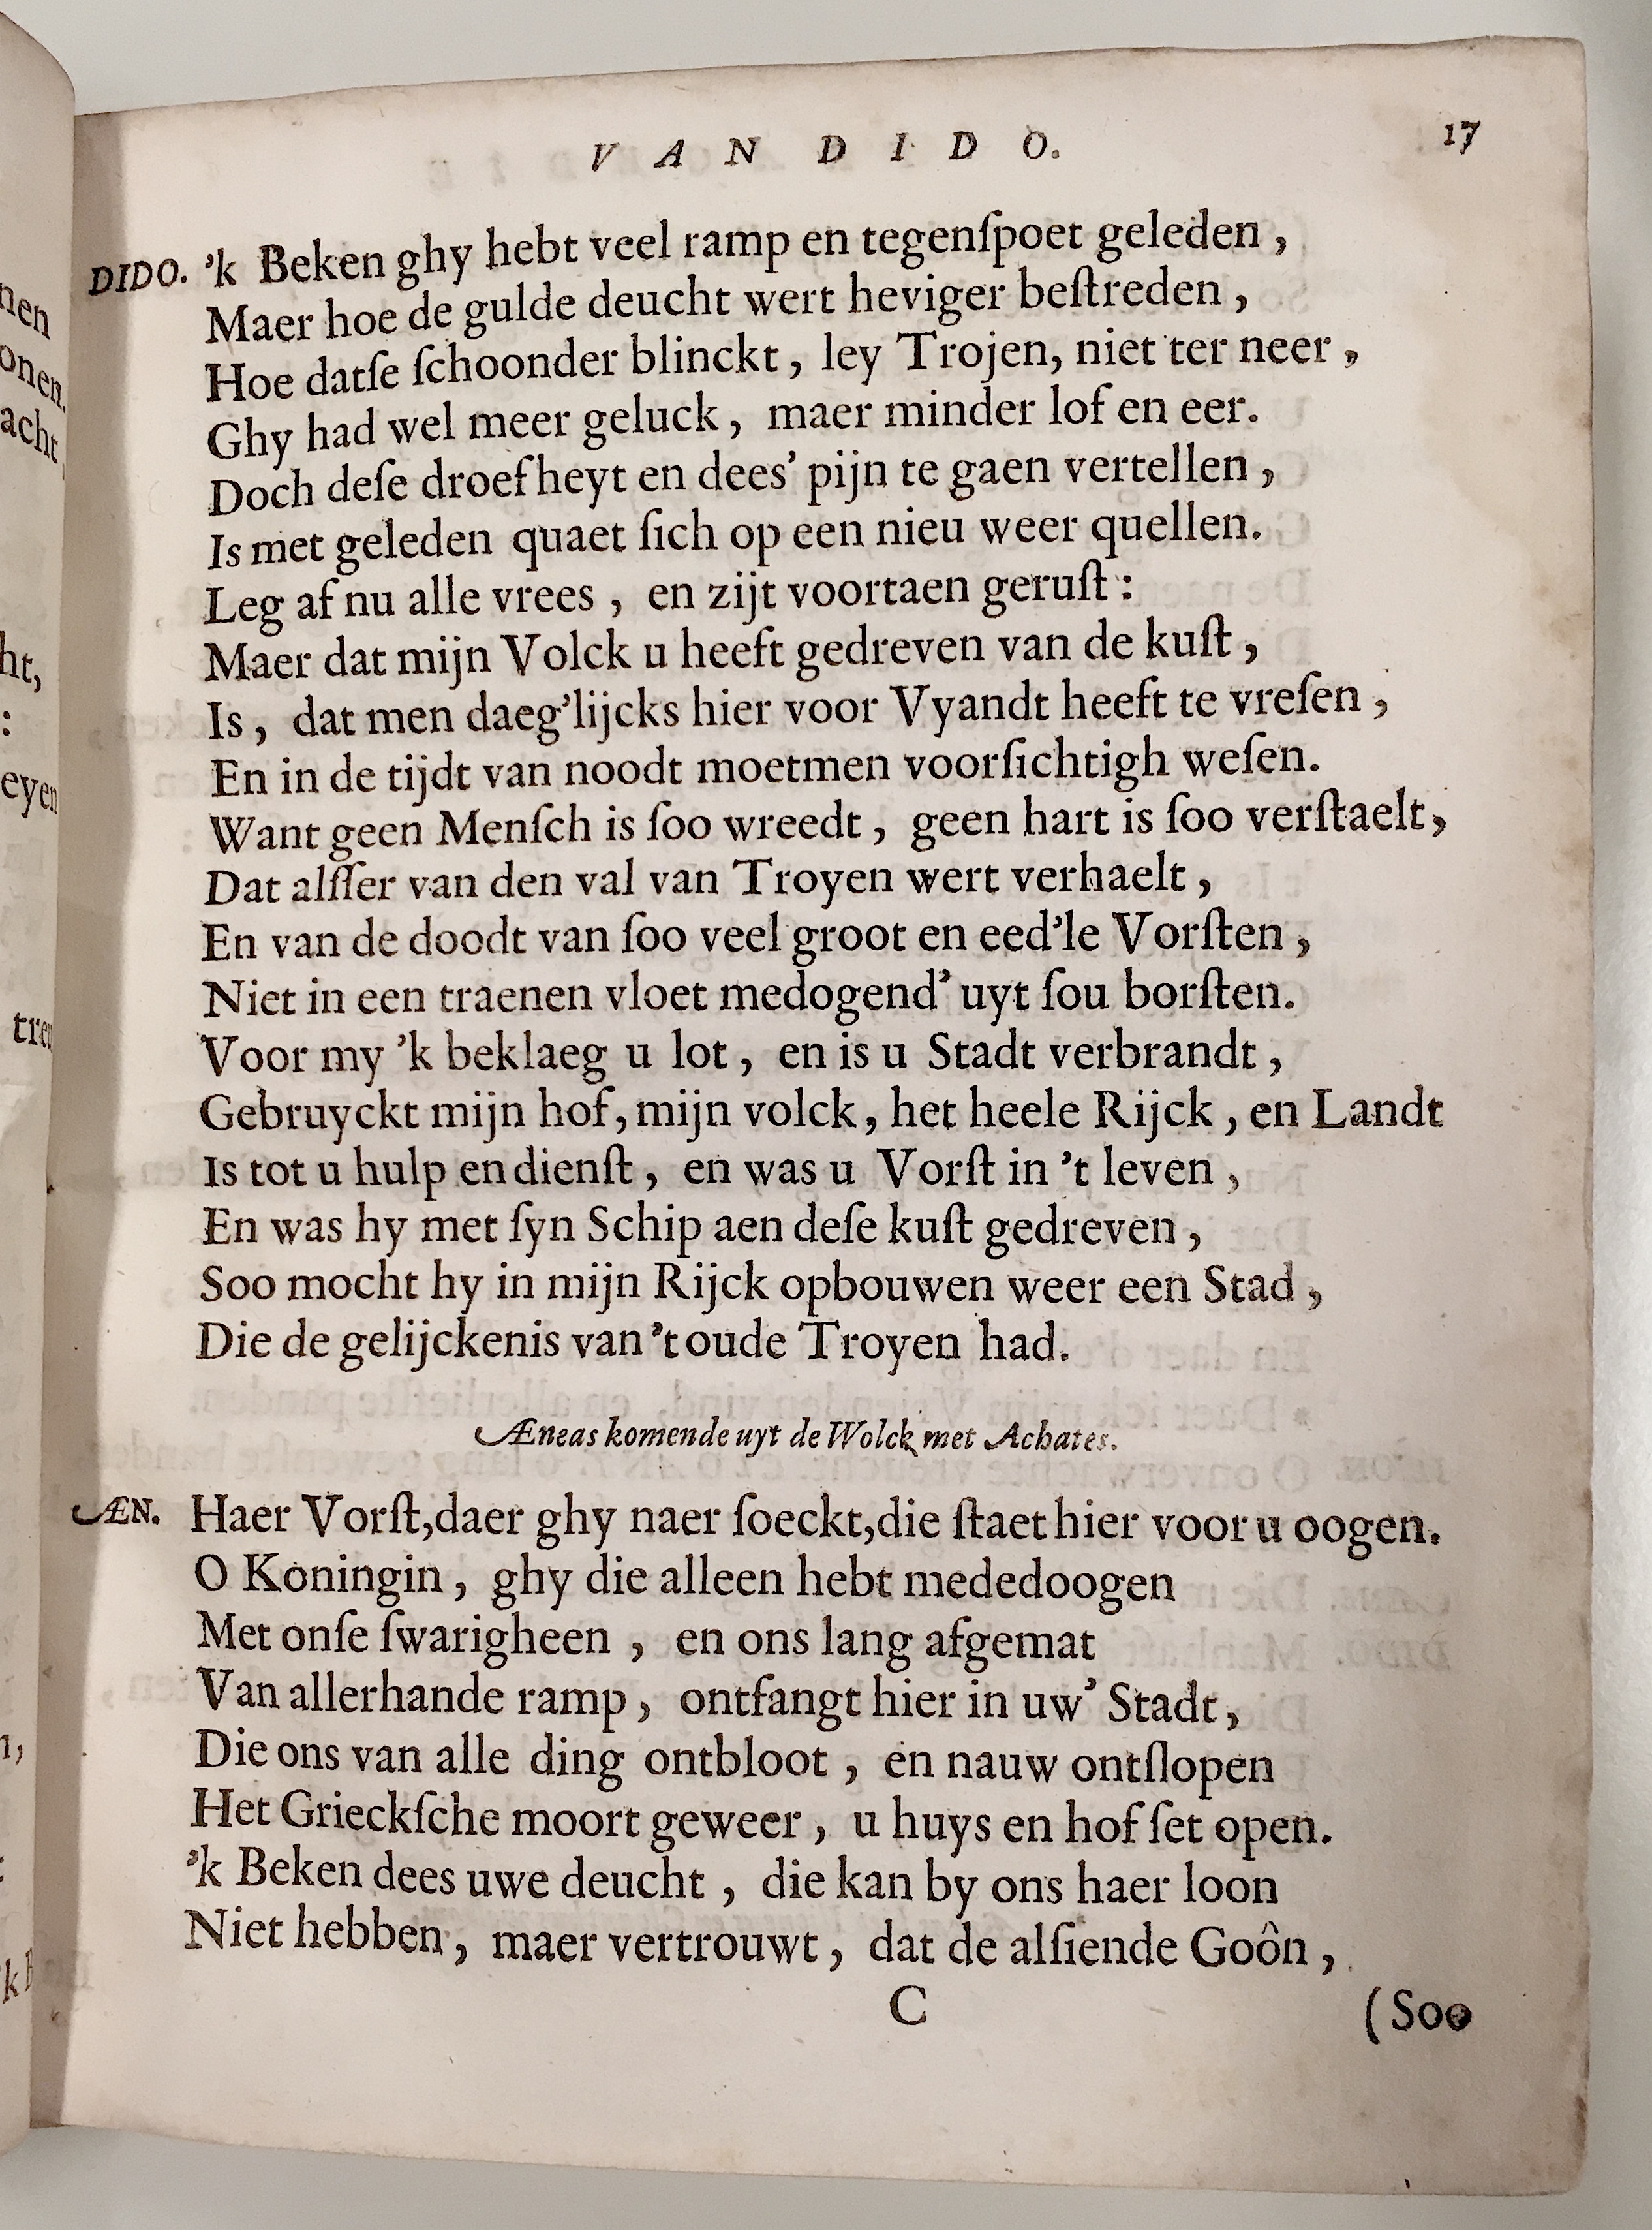 VAN DIDO.
17
DIDO. 'k Beken ghy hebt veel ramp en tegenſpoet geleden,
Maer hoe de gulde deucht wert heviger beſtreden,
Hoe datſe ſchoonder blinckt, ley Trojen, niet ter neer,
Ghy had wel meer geluck, maer minder lof en eer.
Doch deſe droefheyt en dees' pijn te gaen vertellen,
Is met geleden quaet ſich op een nieu weer quellen.
Leg af nu alle vrees, en zijt voortaen geruſt:
Maer dat mijn Volck u heeft gedreven van de kuſt,
Is, dat men daeg'lijcks hier voor Vyandt heeft te vreſen,
En in de tijdt van noodt moetmen voorſichtigh weſen.
Want geen Menſch is ſoo wreedt, geen hart is ſoo verſtaelt,
Dat alſſer van den val van Troyen wert verhaelt,
En van de doodt van ſoo veel groot en eed'le Vorſten,
Niet in een traenen vloet medogend' uyt ſou borſten.
Voor my 'k beklaeg u lot, en is u Stadt verbrandt,
Gebruyckt mijn hof, mijn volck, het heele Rijck, en Landt
Is tot u hulp en dienſt, en was u Vorſt in 't leven,
En was hy met ſyn Schip aen deſe kuſt gedreven,
Soo mocht hy in mijn Rijck opbouwen weer een Stad,
Die de gelijckenis van 't oude Troyen had.
Æneas komende uyt de Wolck met Achates.
ÆN. Haer Vorſt, daer ghy naer ſoeckt, die ſtaet hier voor u oogen.
O Koningin, ghy die alleen hebt mededoogen
Met onſe ſwarigheen, en ons lang afgemat
Van allerhande ramp, ontfangt hier in uw' Stadt,
Die ons van alle ding ontbloot, en nauw ontſlopen
Het Grieckſche moort geweer, u huys en hof ſet open.
'k Beken dees uwe deucht, die kan by ons haer loon
Niet hebben, maer vertrouwt, dat de alſiende Goôn,
C
(Soo